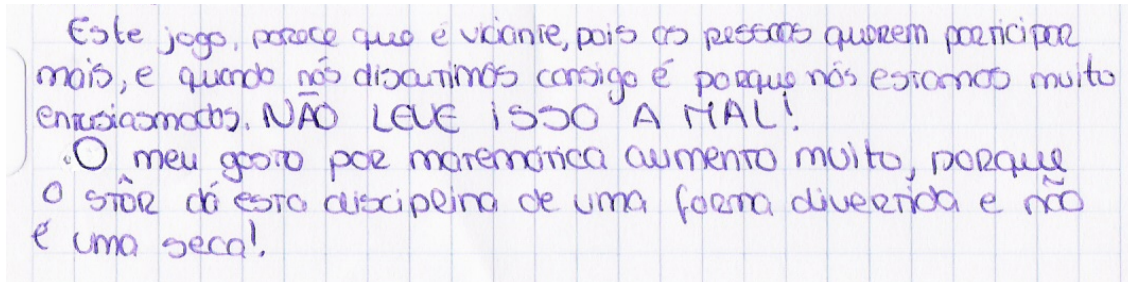 Este jogo, parece que é viciante, pois as pessoas querem participar
mais, e quando nós discutimos consigo é porque nós estamos muito
entusiasmados. NÃO LEVE ISSO A MAL!
O meu gosto por matemática aumento muito, porque
o stôr dá esta disciplina de uma forma divertida e não
é uma seca!.